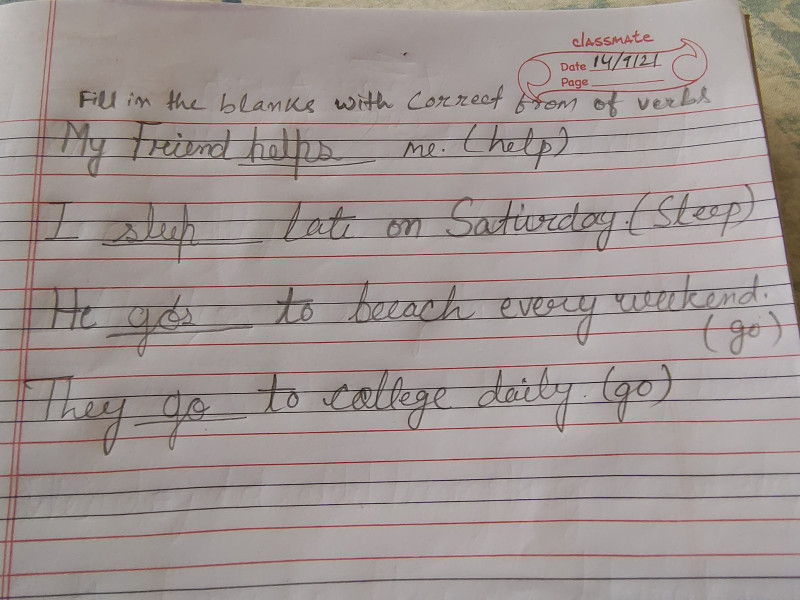 classmate
Date 14/9/21
Page
Fill in the blanks with correct from of verbs
My friend helps me. (help)
I sleep late on Saturday. (Sleep)
He gos to beeach every weekend.
(go)
They go to college daily. (go)